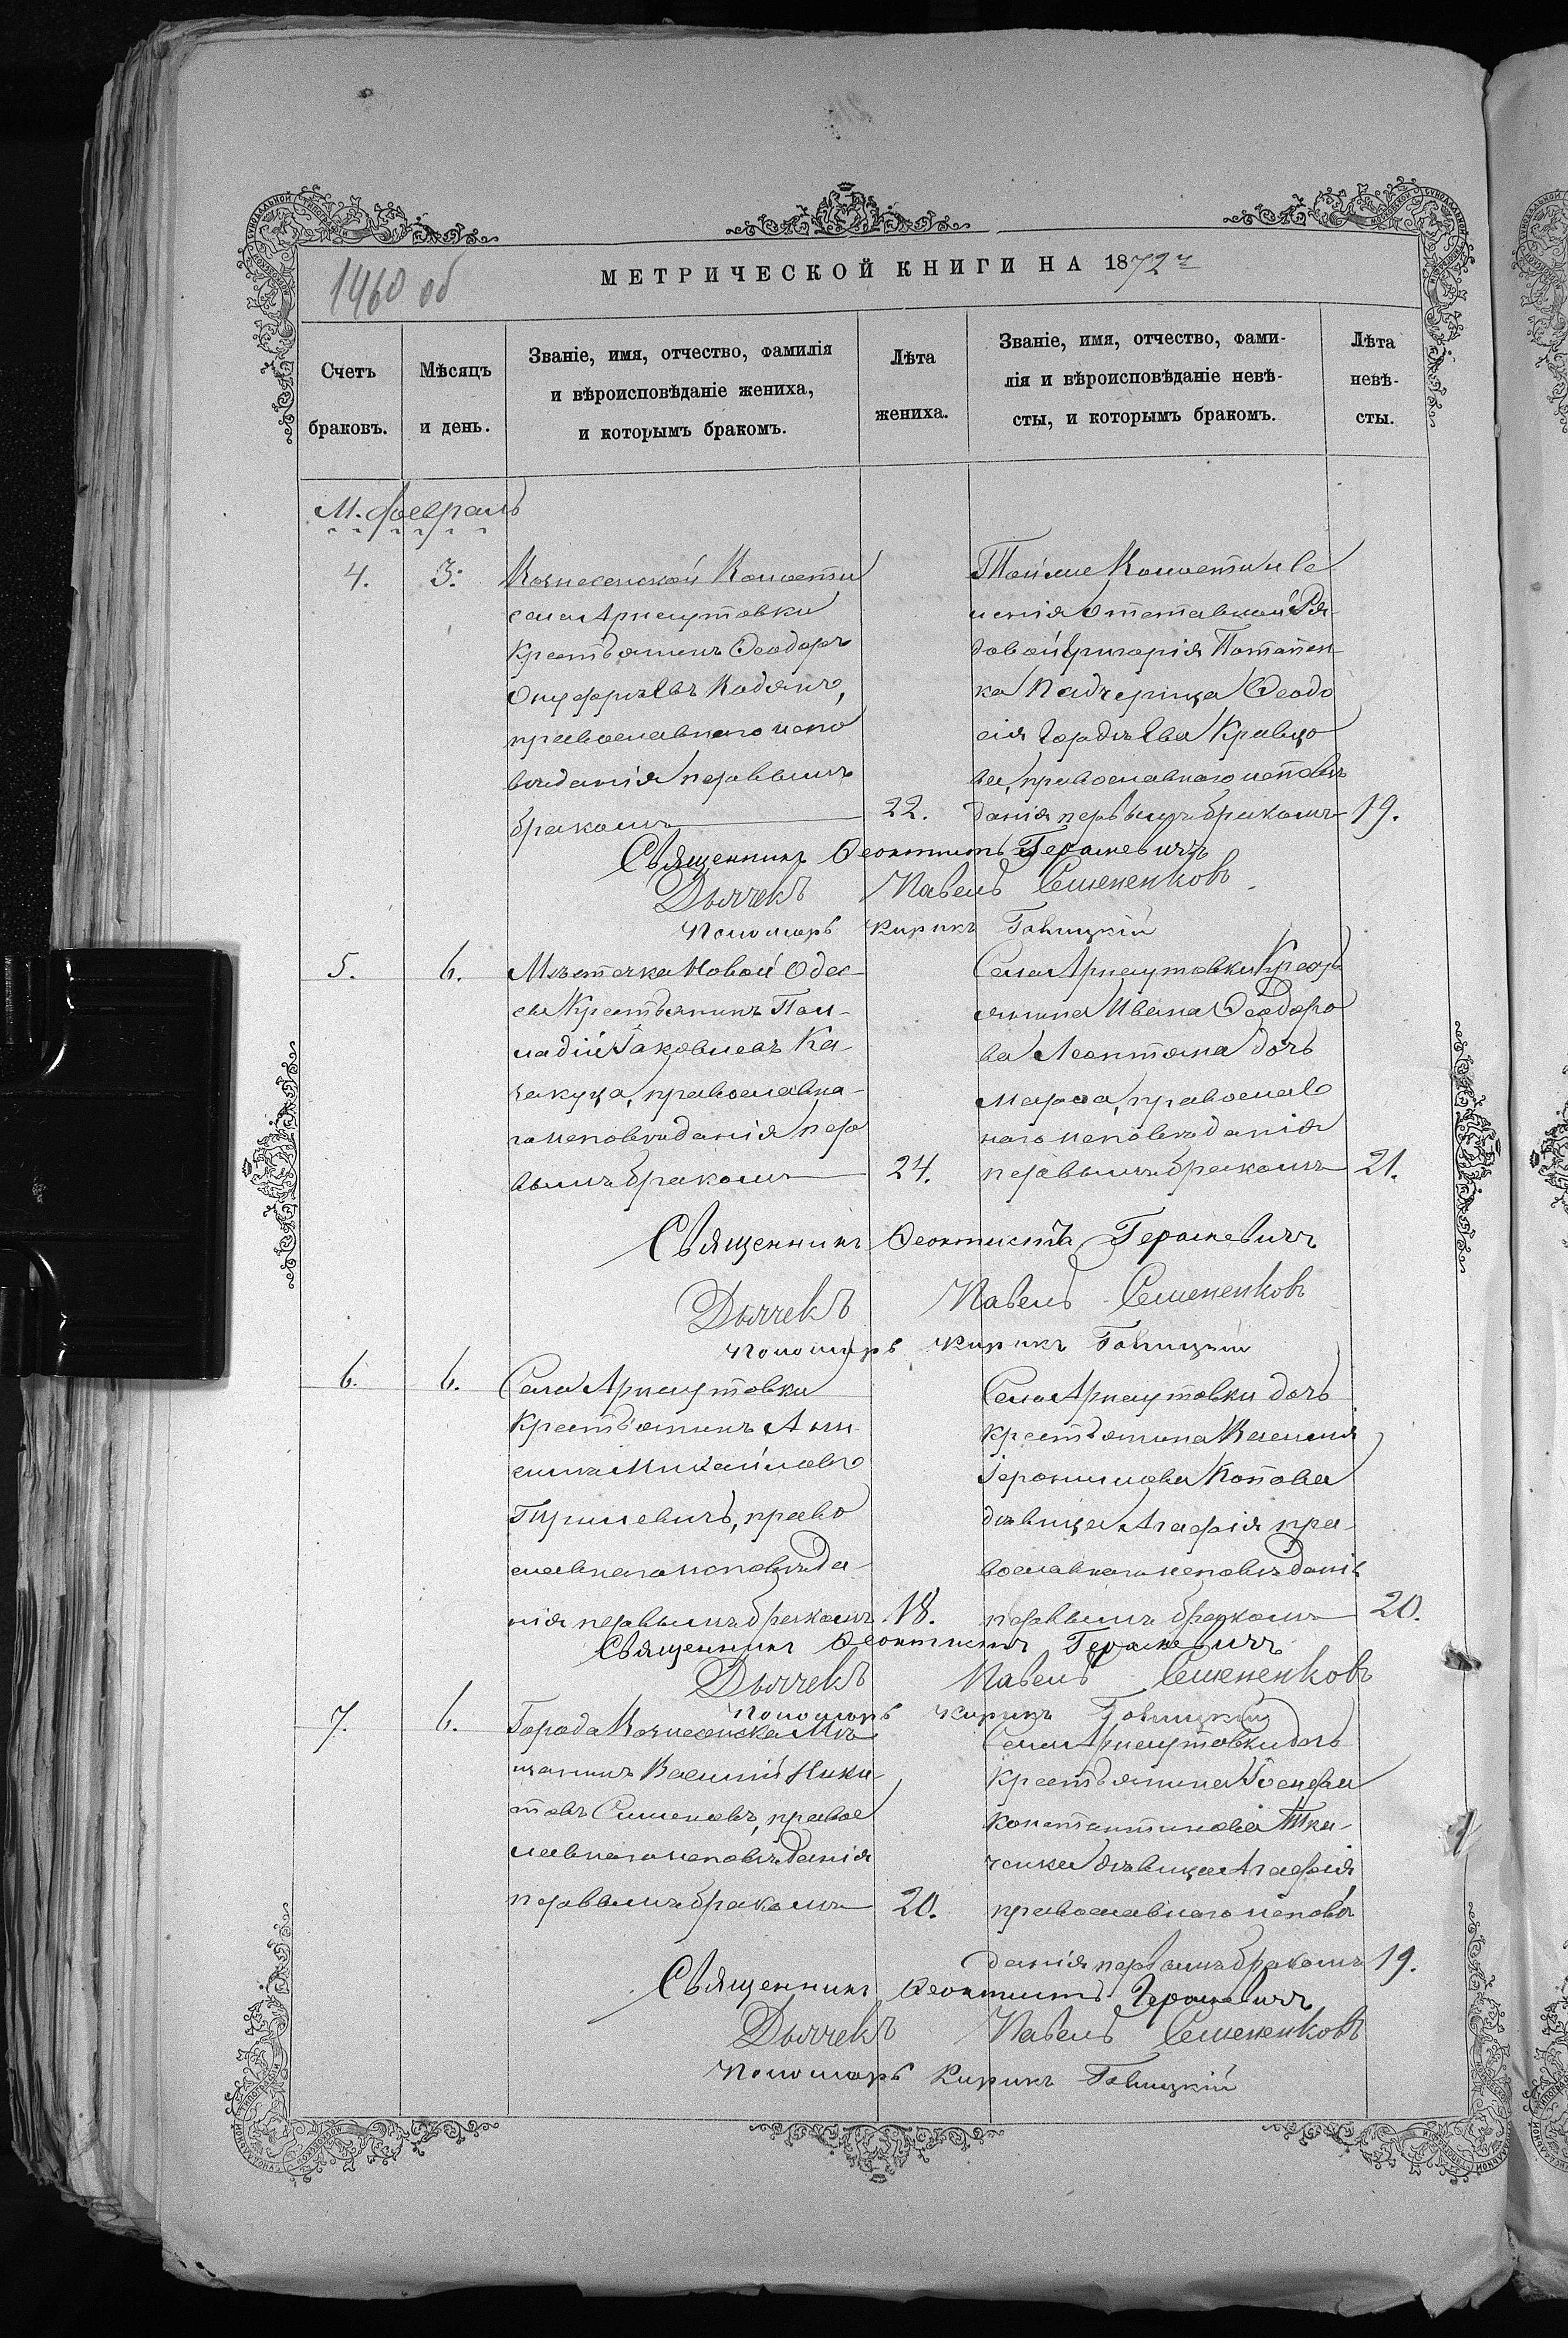 МЕТРИЧЕСКОЙ КНИГИ НА 1872 г
1460 об
Счетъ браковъ.
Мѣсяцъ и день.
Званіе, имя, отчество, фамилія
и вѣроисповѣданіе жениха,
и которымъ бракомъ.
Лѣта жениха.
Званіе, имя, отчество, фами-
лія и вѣроисповѣданіе невѣ-
сты, и которымъ бракомъ.
Лѣта невѣ-
сты.
М. февраль
4.
3.
Вознесенской Волости
села Арнаутовки
Крестьянинъ Ѳеодоръ
Онуфріевъ Кодянъ,
православнаго испо
вѣданія первымъ
бракомъ
22.
Той же Волости и се
ленія отставной Ря-
довой Григорія Потапен-
ка Падчерица Ѳеодо
сія Гордѣева Кравцо
ва, православнаго исповѣ
данія первымъ бракомъ
19.
Священникъ Ѳеоктистъ Гераневичъ
Дьячекъ Павелъ Семененковъ
Пономарь Кирикъ Говицкій
5.
6.
Мѣстечка Новой Одес-
сы Крестьянинъ Пал-
ладій Іаковлевъ Ка-
чакуца, православна-
го исповѣданія пер
вымъ бракомъ
24.
Села Арнаутовки Кресть
янина Ивана Ѳеодоро
ва Леонтяна дочь
Марѳа, православ
наго исповѣданія
первымъ бракомъ
21.
Священникъ Ѳеоктистъ Гераневичъ
Дьячекъ Павелъ Семененковъ
Пономарь Кирикъ Говицкій
6.
6.
Села Арнаутовки
Крестьянинъ Ани
симъ Михайловъ
православнаго исповѣда-
нія первымъ бракомъ
18.
Села Арнаутовки дочь
крестьянина Василія
Іеронимова Попова
дѣвица Агафія пра-
вославнаго исповѣданія
первымъ бракомъ
20.
Священникъ Ѳеоктистъ Гераневичъ
Дьячекъ Павелъ Семененковъ
Пономарь Кирикъ Говицкій
7.
6.
Города Вознесенска Мѣ
щанинъ Василій Ники-
товъ Сименовъ, правос
лавнаго исповѣданія
первымъ бракомъ
20.
Села Арнаутовки дочь
Крестьянина Іосифа
Константинова Тка-
ченка дѣвица Агафія
православнаго исповѣ
данія первымъ бракомъ
19.
Священникъ Ѳеоктистъ Гераневичъ
Дьячекъ Павелъ Семененковъ
Пономарь Кирикъ Говицкій